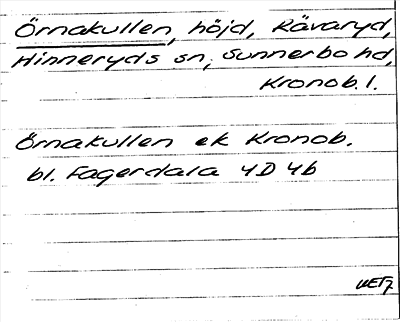 Örnakullen, höjd, Rävaryd,
Hinneryds sn, Sunnerbo hd,
Kronob. l.
Örnakullen ek Kronob.
bl. Fagerdala 4D 4b